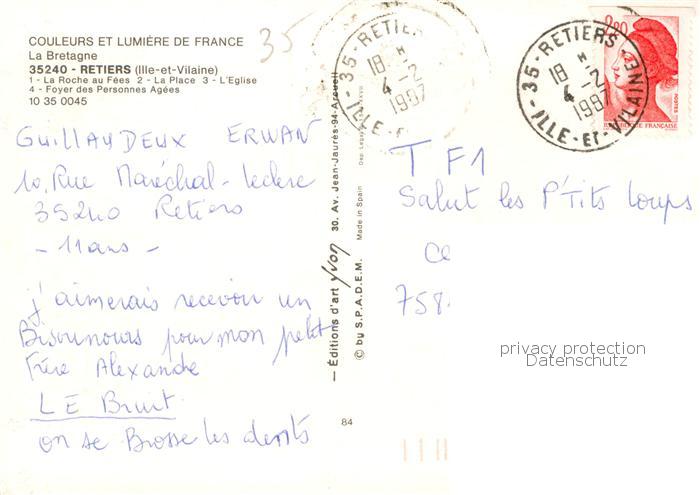 COULEURS ET LUMIÈRE DE FRANCE
La Bretagne
35240 - RETIERS (Ille-et-Vilaine)
1 - La Roche au Fées 2 - La Place 3 - L'Eglise
4 - Foyer des Personnes Agées
10 35 0045
35
GUILLAUDEUX ERWAN
10, Rue Maréchal-Leclerc
35240 Retiers
- 11 ans -
j'aimerais recevoir un
Bisounours pour mon petit
Frère Alexandre
LE Bruit
on se Brosse les dents
— Editions d'art yvon 30. Av. Jean-Jaurès-94-Arcueil
© by S.P.A.D.E.M. Made in Spain
84
35 - RETIERS
18 H
4 - 2
1987
35 - RETIERS
18 H
4 - 2
1987
ILLE - ET - VILAINE
2,20
POSTES
RÉPUBLIQUE FRANÇAISE
T F1
Salut les P'Tits Loups
Ce
758
privacy protection
Datenschutz